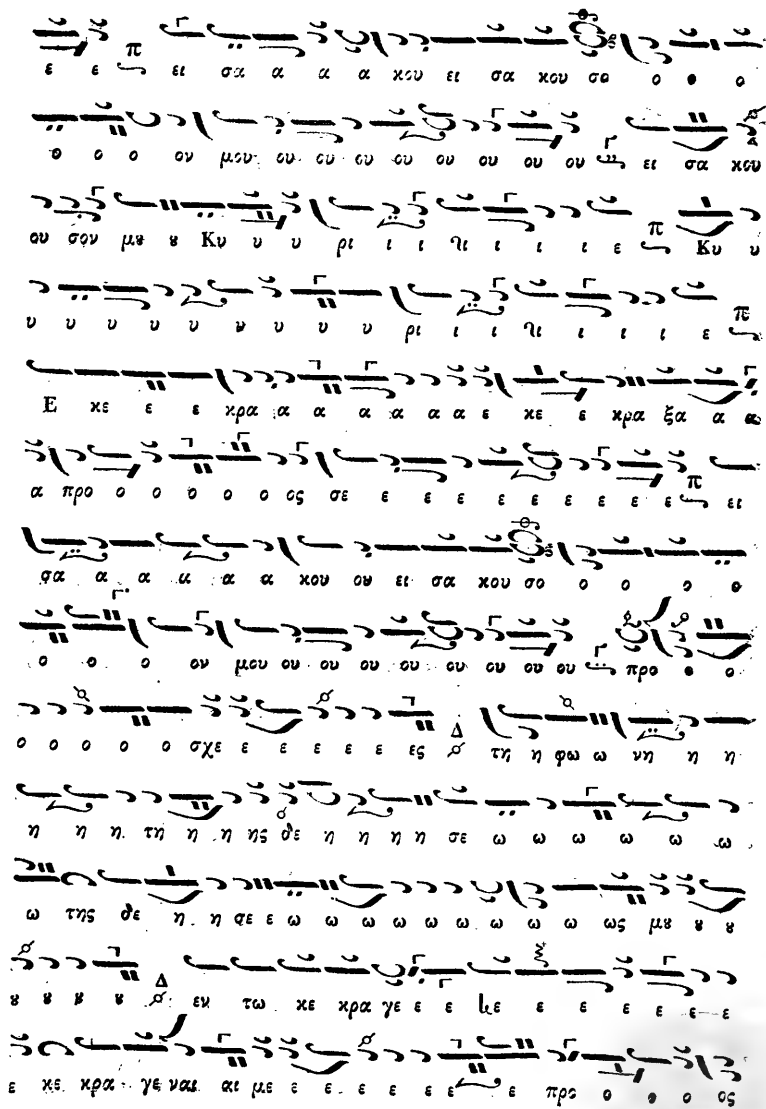 ε ε π ει σα α α α κου ει σα κου σο ο ο ο
ο ο ο ον μου ου ου ου ου ου ου ου ου ει σα κου
ου σον μȣ ȣ Κυ υ υ ρι ι ι ι ι ι ε π Κυ υ
υ υ υ υ υ υ υ υ ρι ι ι ι ι ι ε π
Ε κε ε ε κρα α α α α α α ε κε ε κρα ξα α α
α προ ο ο ο ο ο ος σε ε ε ε ε ε ε ε ε π ει
σα α α α α α κου ου ει σα κου σο ο ο ο ο
ο ο ο ον μου ου ου ου ου ου ου ου ου προ ο ο
ο ο ο ο ο σχε ε ε ε ε ε ες Δ τη η φω ω νη η η
η η η τη η η ης δε η η η η σε ω ω ω ω ω ω
ω της δε η η σε ε ω ω ω ω ω ω ω ω ως μȣ ȣ ȣ
ȣ ȣ ȣ ȣ Δ εν τω κε κρα γε ε ε ε ε ε ε ε ε
ε κε κρα γε ναι αι με ε ε ε ε ε ε προ ο ο ο ος